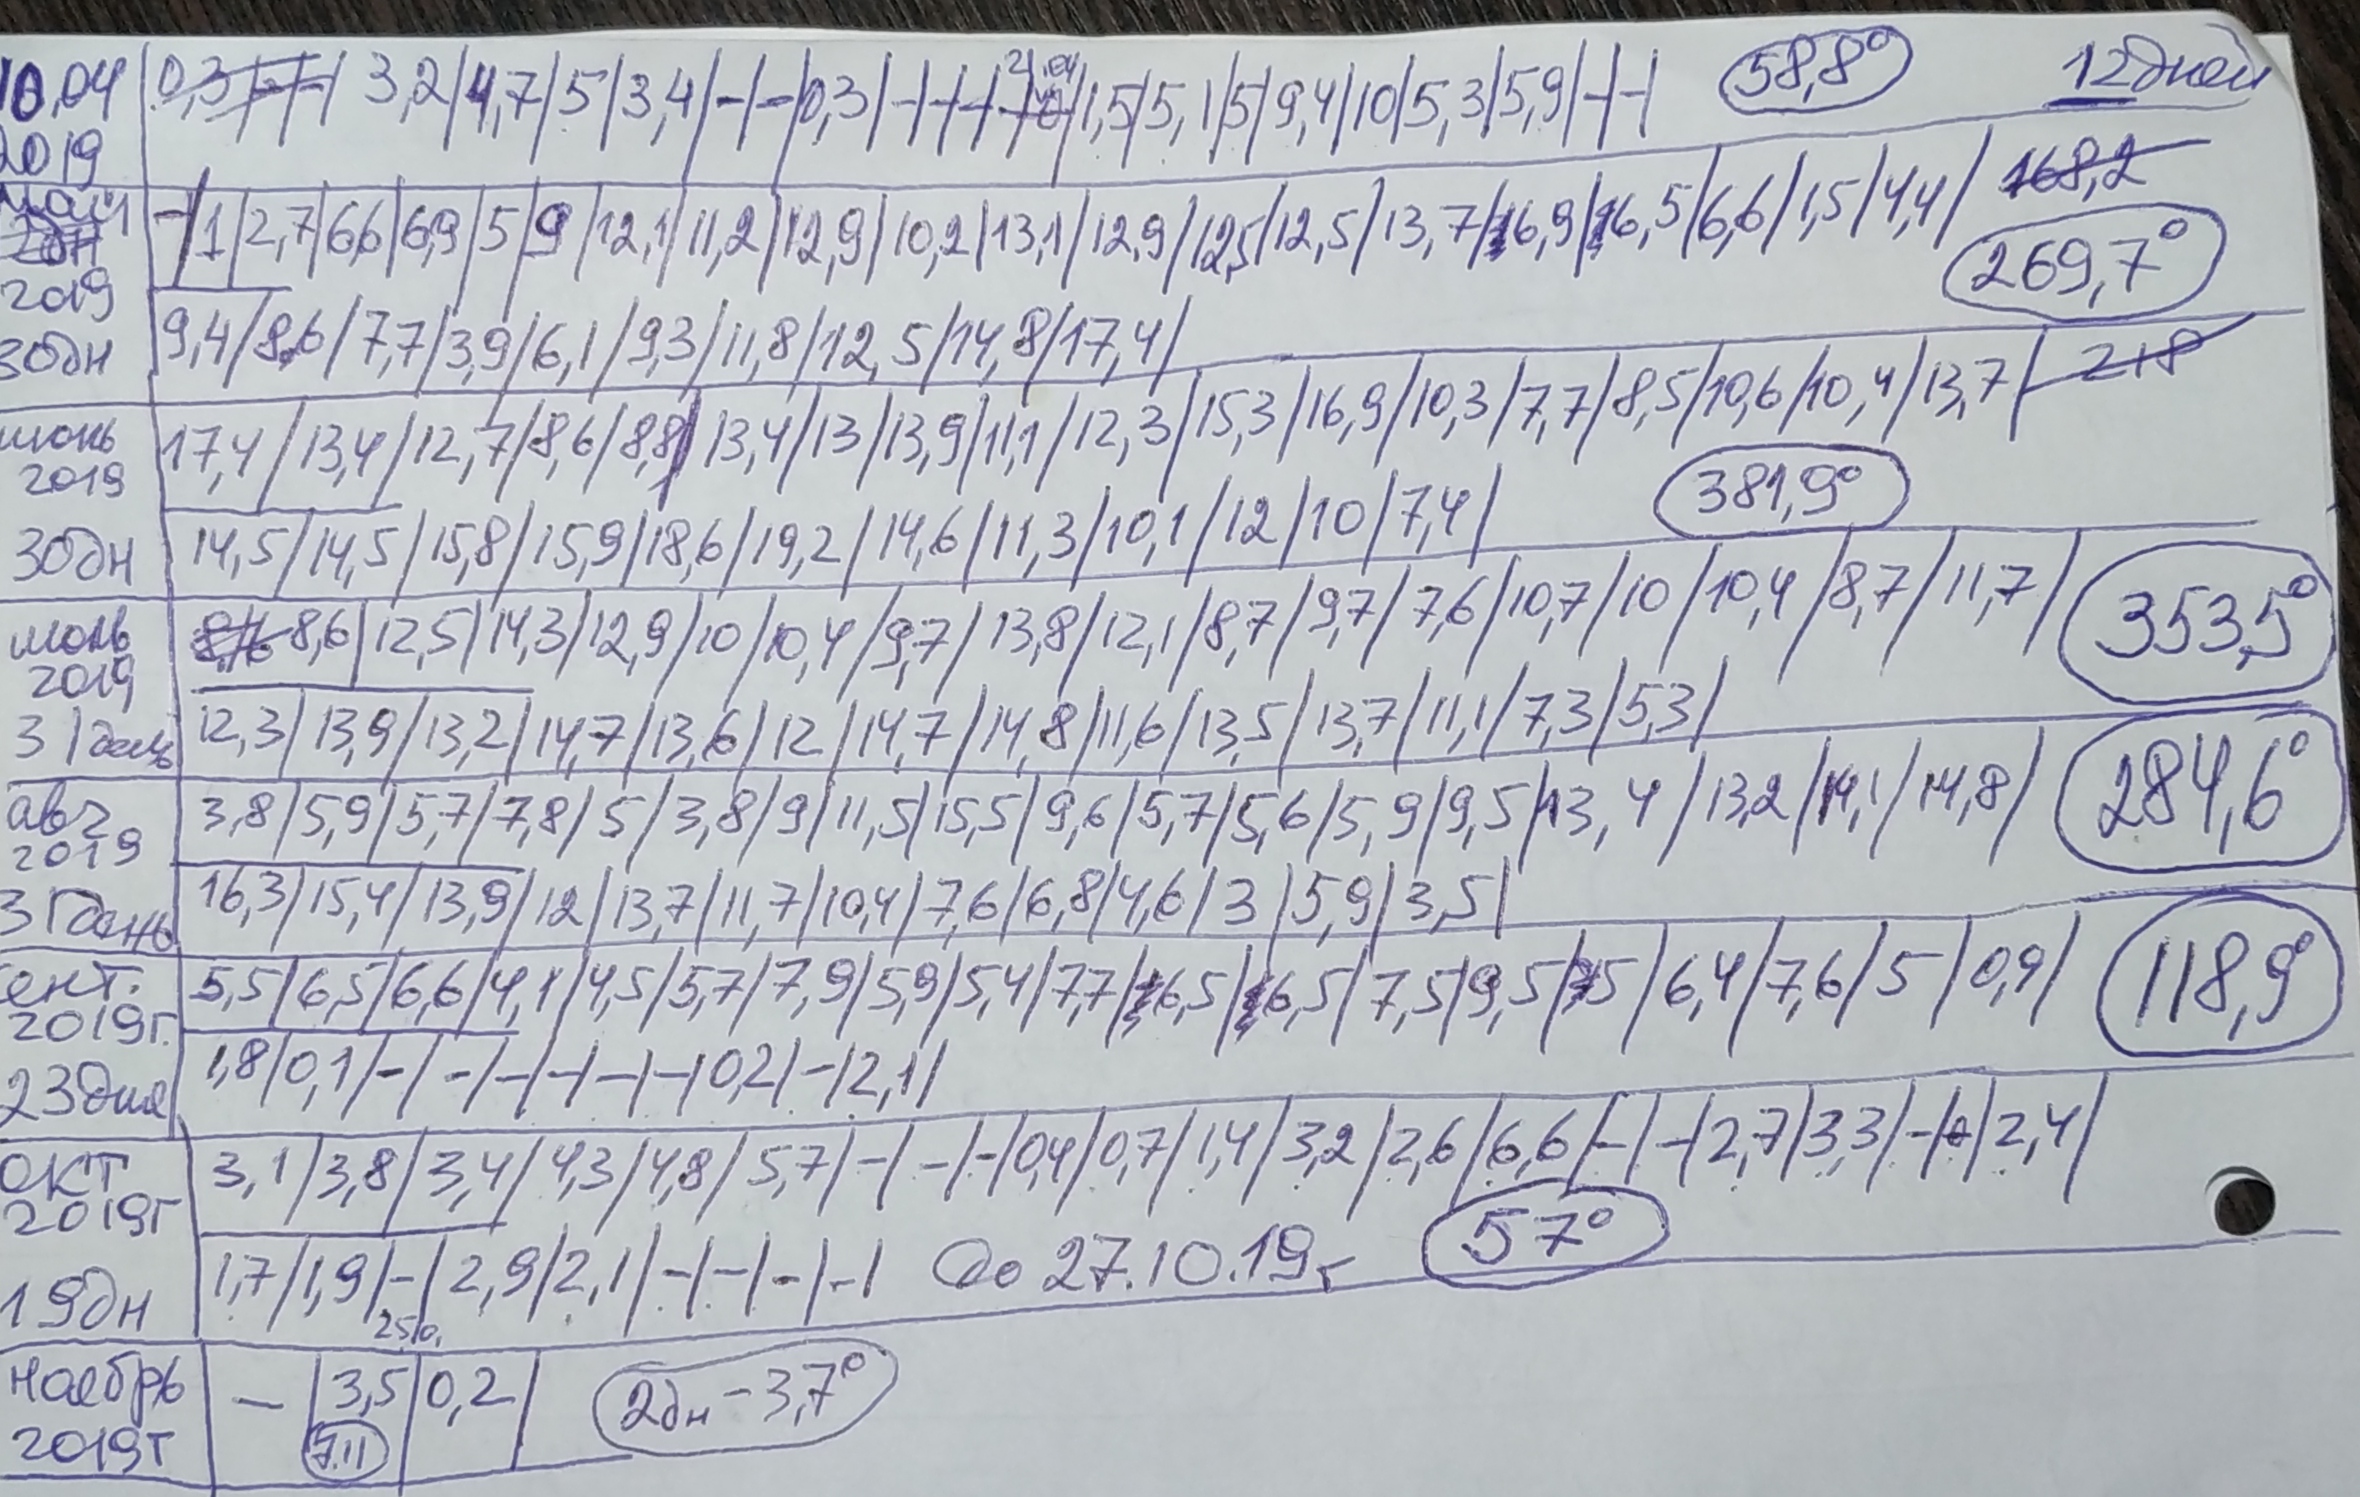 10.04 0,3 |-|-| 3,2|4,7|5|3,4|-|-|0,3|-|-|-|-|1,5|5,1|5|9,4|10|5,3|5,9|-|-| 58,8° 12 дней
2019
май -|1|2,7|6,6|6,9|5|9|12,1|11,2|12,9|10,2|13,1|12,9|12,5|12,5|13,7|16,9|16,5|6,6|1,5|4,4| 168,2
2019 269,7°
30дн 9,4|8,6|7,7|3,9|6,1|9,3|11,8|12,5|14,8|17,4|
июнь 17,4|13,4|12,7|8,6|8,8|13,4|13|13,9|11,1|12,3|15,3|16,9|10,3|7,7|8,5|10,6|10,4|13,7| 218
2019 381,9°
30дн 14,5|14,5|15,8|15,9|18,6|19,2|14,6|11,3|10,1|12|10|7,4|
июль 8,6 8,6|12,5|14,3|12,9|10|10,4|9,7|13,8|12,1|8,7|9,7|7,6|10,7|10|10,4|8,7|11,7| 353,5°
2019
31день 12,3|13,9|13,2|14,7|13,6|12|14,7|14,8|11,6|13,5|13,7|11,1|7,3|5,3|
авг 3,8|5,9|5,7|7,8|5|3,8|9|11,5|15,5|9,6|5,7|5,6|5,9|9,5|13,4|13,2|14,1|14,8| 284,6°
2019
31день 16,3|15,4|13,9|12|13,7|11,7|10,4|7,6|6,8|4,6|3|5,9|3,5|
сент. 5,5|6,5|6,6|4,1|4,5|5,7|7,9|5,9|5,4|7,7|6,5|6,5|7,5|9,5|5|6,4|7,6|5|0,9| 118,9°
2019г.
23дня 1,8|0,1|-|-|-|-|-|-|0,2|-|2,1|
окт 3,1|3,8|3,4|4,3|4,8|5,7|-|-|-|0,4|0,7|1,4|3,2|2,6|6,6|-|-|2,7|3,3|-|-|2,4|
2019г
19дн 1,7|1,9|-|2,9|2,1|-|-|-|-| До 27.10.19г 57°
ноябрь - |3,5|0,2| 2дн - 3,7°
2019г 7.11